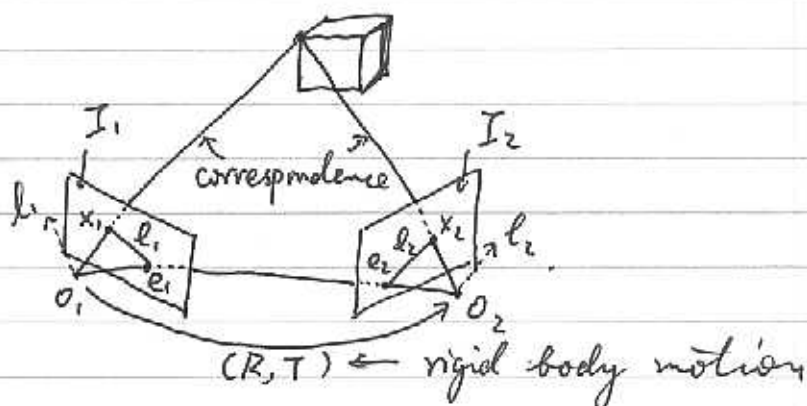 I₁
I₂
correspondence
l₁
x₁
l₁
e₁
x₂
l₂
e₂
l₂
o₁
o₂
(R, T) ← rigid body motion